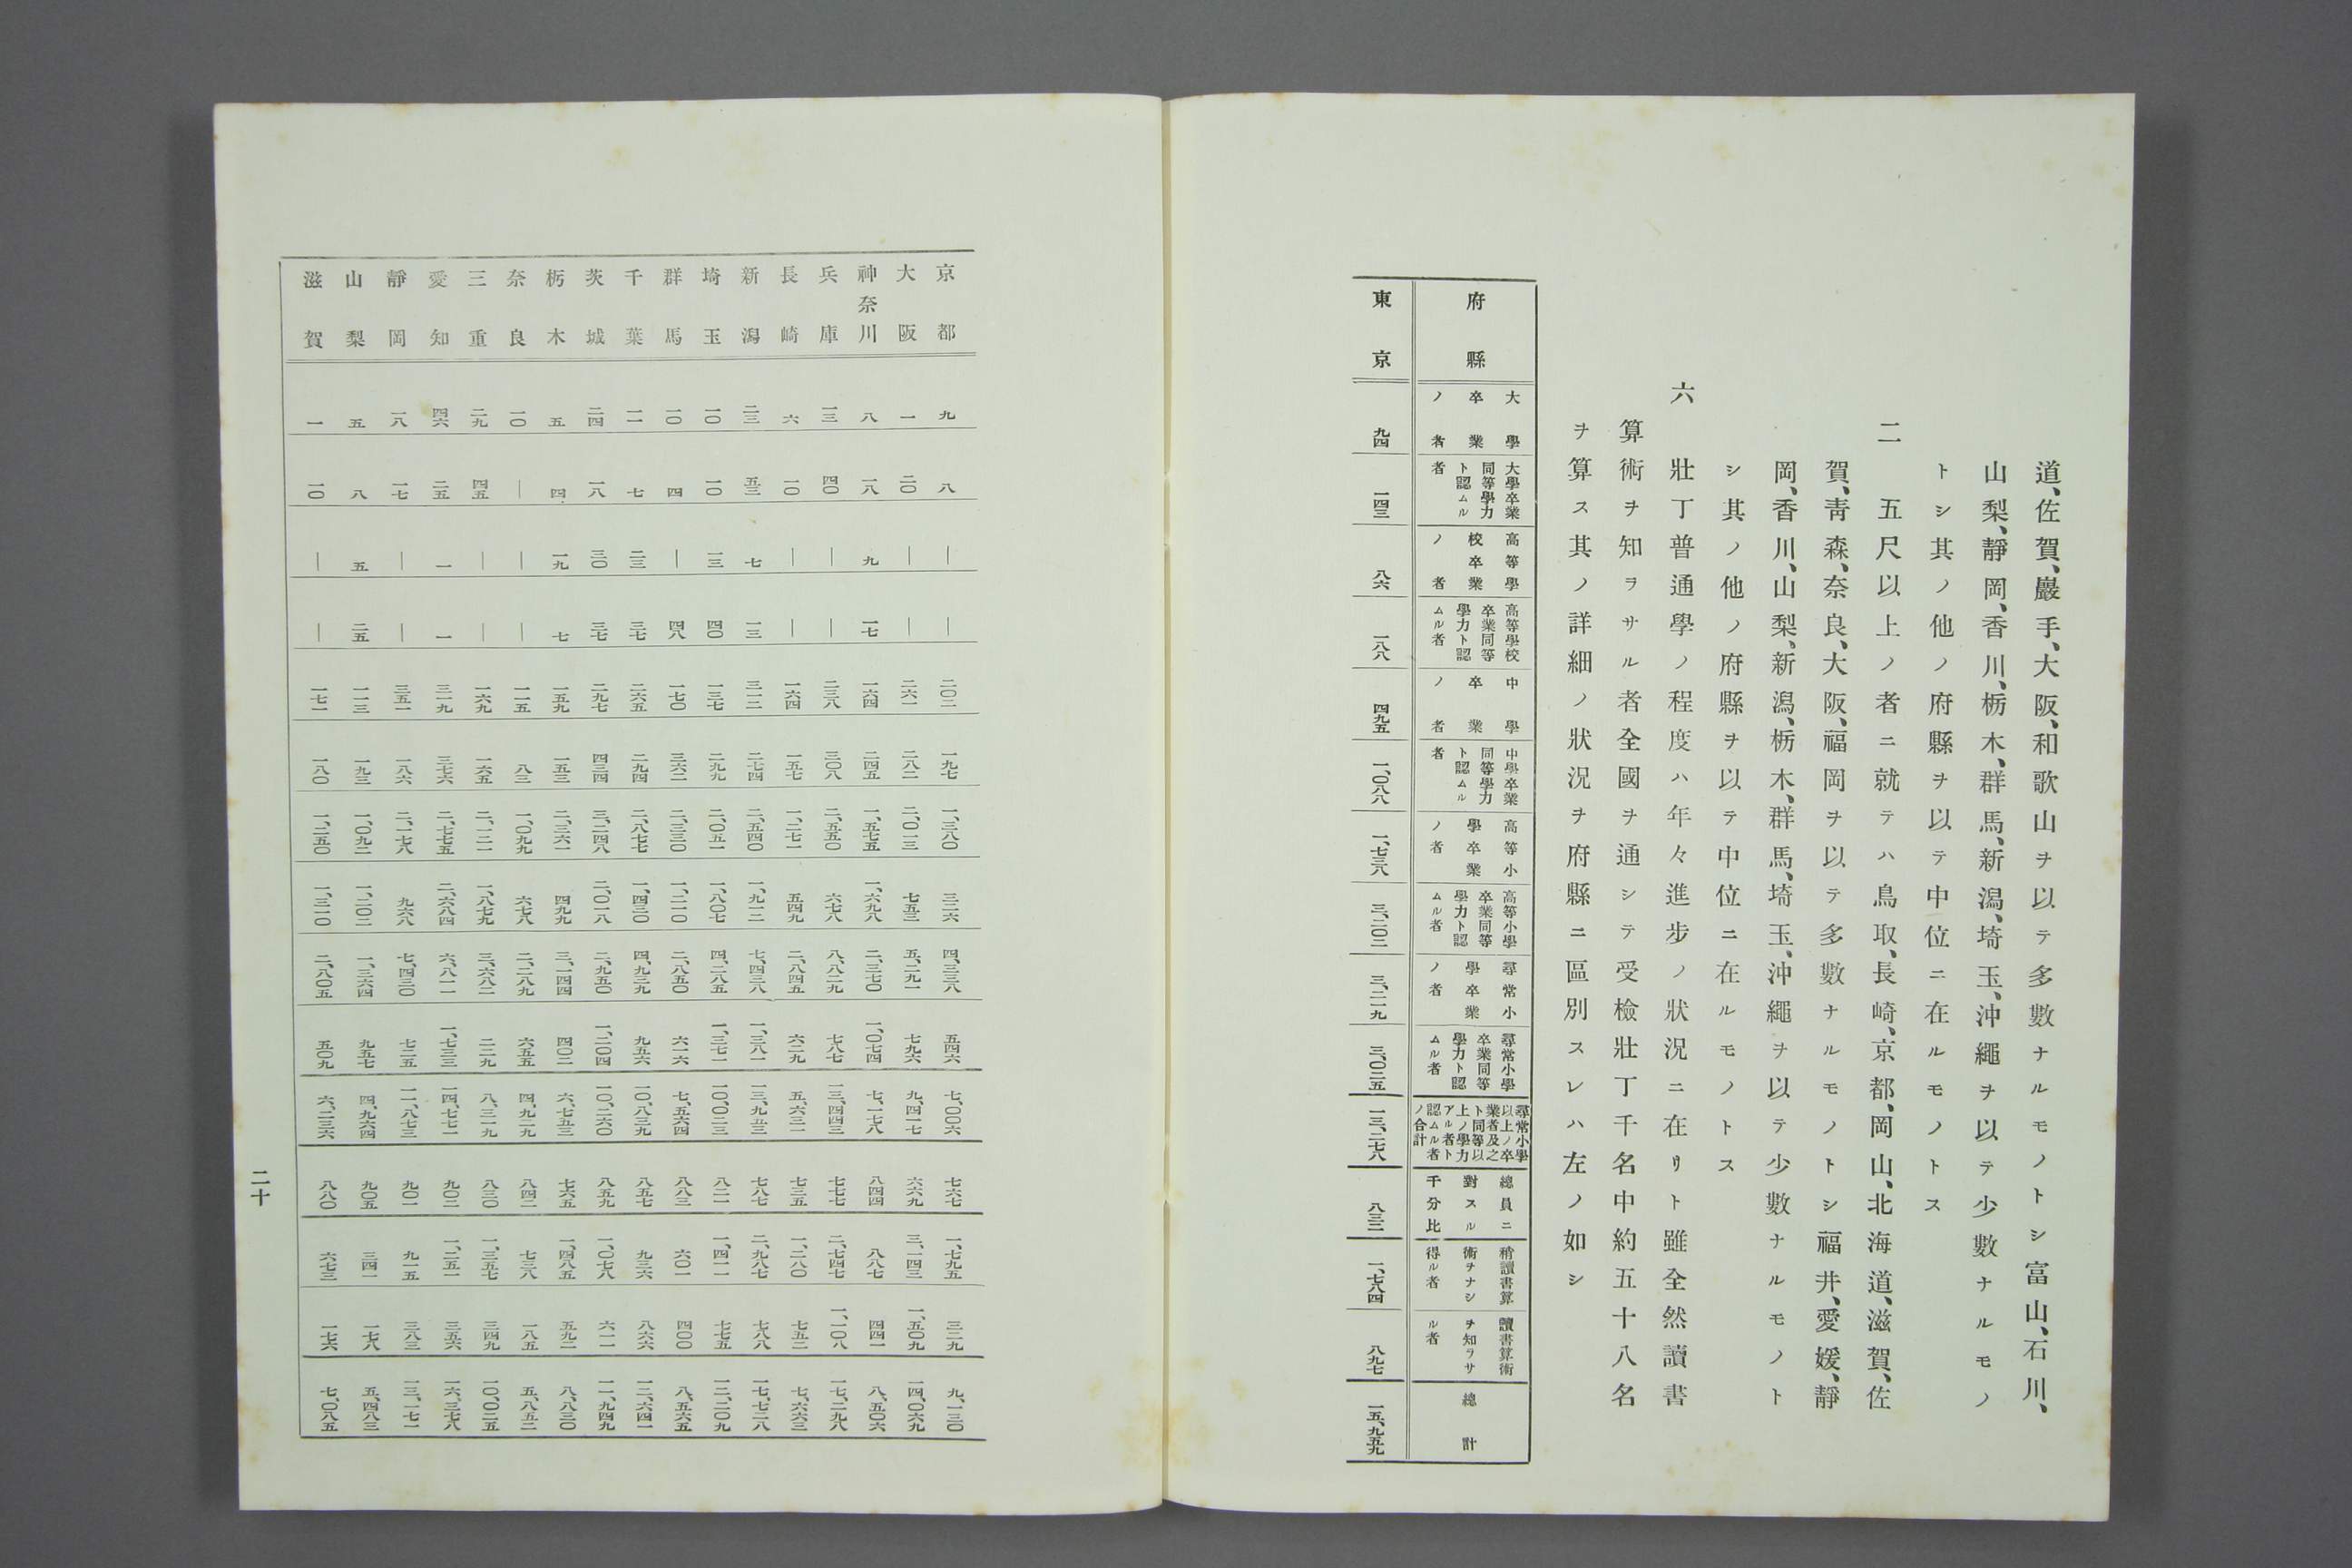 道、佐賀、巖手、大阪、和歌山ヲ以テ多數ナルモノトシ富山、石川、
山梨、靜岡、香川、栃木、群馬、新潟、埼玉、沖繩ヲ以テ少數ナルモノ
トシ其ノ他ノ府縣ヲ以テ中位ニ在ルモノトス
二 五尺以上ノ者ニ就テハ鳥取、長崎、京都、岡山、北海道、滋賀、佐
賀、青森、奈良、大阪、福岡ヲ以テ多數ナルモノトシ福井、愛媛、靜
岡、香川、山梨、新潟、栃木、群馬、埼玉、沖繩ヲ以テ少數ナルモノト
シ其ノ他ノ府縣ヲ以テ中位ニ在ルモノトス
六 壯丁普通學ノ程度ハ年々進步ノ狀況ニ在リト雖全然讀書
算術ヲ知ヲサル者全國ヲ通シテ受檢壯丁千名中約五十八名
ヲ算ス其ノ詳細ノ狀況ヲ府縣ニ區別スレハ左ノ如シ
府縣 大學卒業ノ者 大學卒業同等學力ト認ムル者 高等學校卒業ノ者 高等學校卒業同等學力ト認ムル者 中學卒業ノ者 中學卒業同等學力ト認ムル者 高等小學卒業ノ者 高等小學卒業同等學力ト認ムル者 尋常小學卒業ノ者 尋常小學卒業同等學力ト認ムル者 尋常小學以上ノ卒業者及之ト同等以上ノ學力アル者ト認ムル者ノ合計 總員ニ對スル千分比 稍讀書算術ヲナシ得ル者 讀書算術ヲ知ラサル者 總計
東京 九四 一四三 八六 一八八 四九五 一、〇八八 一、七三八 三、二〇二 三、二一九 三、〇二五 一三、二七八 八三二 一、七八四 八九七 一五、九五九
京都 九 八 ― ― 二〇二 一九七 一、三八〇 三二六 四、三三八 五四六 七、〇〇六 七六七 一、七九五 三二九 九、一三〇
大阪 一 二〇 ― ― 二六一 二八二 二、〇一三 七五三 五、二九一 七九六 九、四一七 六六九 三、一四三 一、五〇九 一四、〇六九
神奈川 八 一八 九 一七 一六四 二四五 一、五七五 一、六九八 二、三七〇 一、〇七四 七、一七八 八四四 八八七 四四一 八、五〇六
兵庫 一三 四〇 ― ― 二三八 三〇八 二、五五〇 六七八 八、八二九 七八七 一三、四四三 七七七 二、七四七 一、一〇八 一七、二九八
長崎 六 一〇 ― ― 一六四 一五七 一、二七一 五四九 二、八四五 六二九 五、六三一 七三五 一、二八〇 七五二 七、六六三
新潟 二三 五三 七 一三 三一二 二七四 二、五四〇 一、九一二 七、四三八 一、三八一 一三、九五三 七八七 二、九八七 七八八 一七、七二八
埼玉 一〇 一〇 一三 四〇 一三七 二九九 二、〇五一 一、八〇七 四、二八五 一、三七一 一〇、〇二三 八二一 一、四一一 七七五 一二、二〇九
群馬 一〇 四 ― 四八 一七〇 三六二 二、三三〇 一、二一〇 二、八五〇 六一六 七、五六四 八八三 六〇一 四〇〇 八、五六五
千葉 一一 七 二三 三七 二六五 二九四 二、八七七 一、四三〇 四、九三九 九五六 一〇、八三九 八五七 九三六 八六六 一二、六四一
茨城 二四 一八 三〇 三七 二九七 四三四 三、二四八 二、〇一八 二、九五〇 一、二〇四 一〇、二六〇 八五九 一、〇七八 六一一 一一、九四九
栃木 五 四 一九 七 一五九 一五三 二、三六一 四九九 三、一四四 四〇二 六、七五三 七六五 一、四八五 五九二 八、八三〇
奈良 一〇 ― ― ― 一一五 八三 一、〇九九 六七八 二、二八九 六五五 四、九二九 八四二 七三八 一八五 五、八五二
三重 二九 四五 ― ― 一六九 一六五 二、一二一 一、八七九 三、六八二 二二九 八、三一九 八三〇 一、三五七 三四九 一〇、〇二五
愛知 四六 二五 一 一 三一九 三七六 二、七七五 二、六八四 六、八一一 一、七三三 一四、七七一 九〇二 一、二五一 三五六 一六、三七八
靜岡 一八 一七 ― ― 三五一 一八六 二、一七八 九六八 七、四三〇 七二五 一一、八七三 九〇一 九一五 三八三 一三、一七一
山梨 五 八 五 二五 一一三 一九三 一、〇九二 一、二〇二 一、三六四 九五七 四、九六四 九〇五 三四一 一七八 五、四八三
滋賀 一 一〇 ― ― 一七一 一八〇 一、二五〇 一、三一〇 二、八〇五 五〇九 六、二三六 八八〇 六七三 一七六 七、〇八五
二十